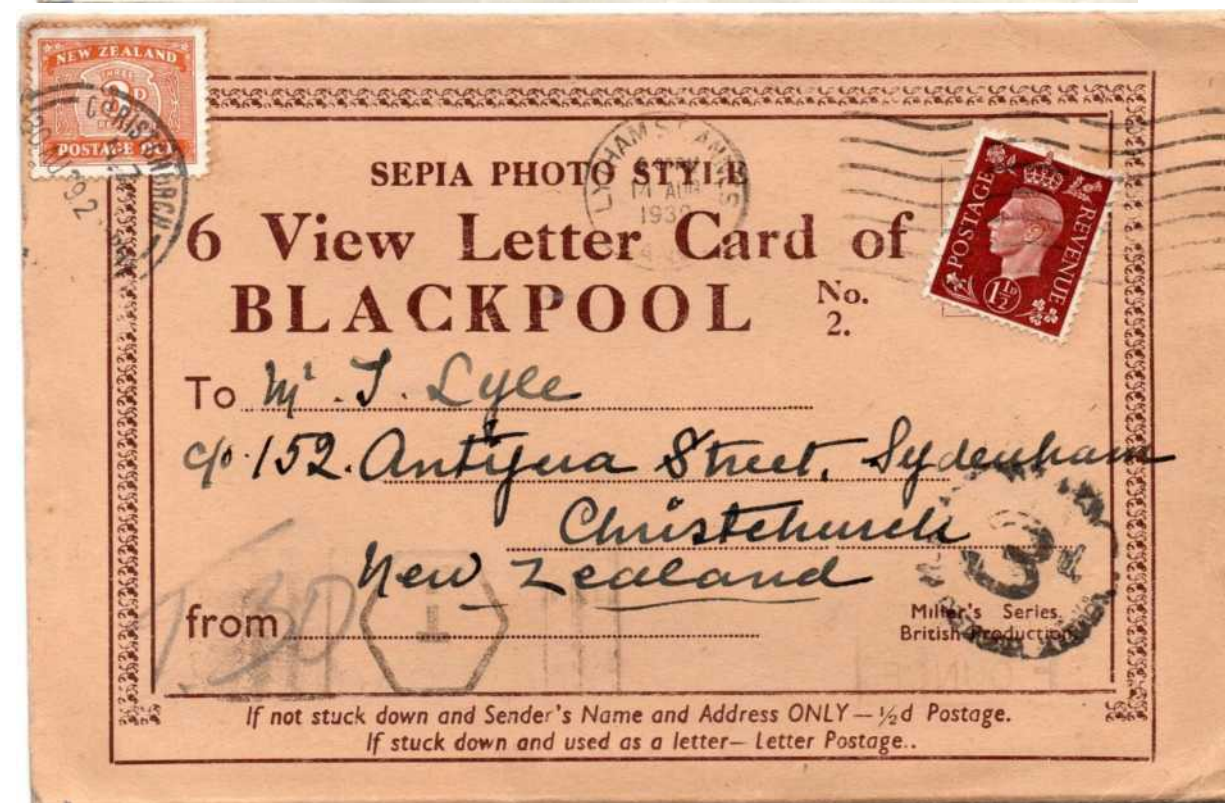 NEW ZEALAND
THREE
3D
POSTAGE DUE
CHRISTCHURCH
LYTHAM ST ANNES
14 AUG
1939
POSTAGE REVENUE
1½D
SEPIA PHOTO STYLE
6 View Letter Card of
BLACKPOOL No. 2.
To Mr. J. Lyle
c/o. 152. Antigua Street, Sydenham
Christchurch
New Zealand
T 3D
T
3
from
Miller's Series.
British Production
If not stuck down and Sender's Name and Address ONLY — ½d Postage.
If stuck down and used as a letter— Letter Postage..